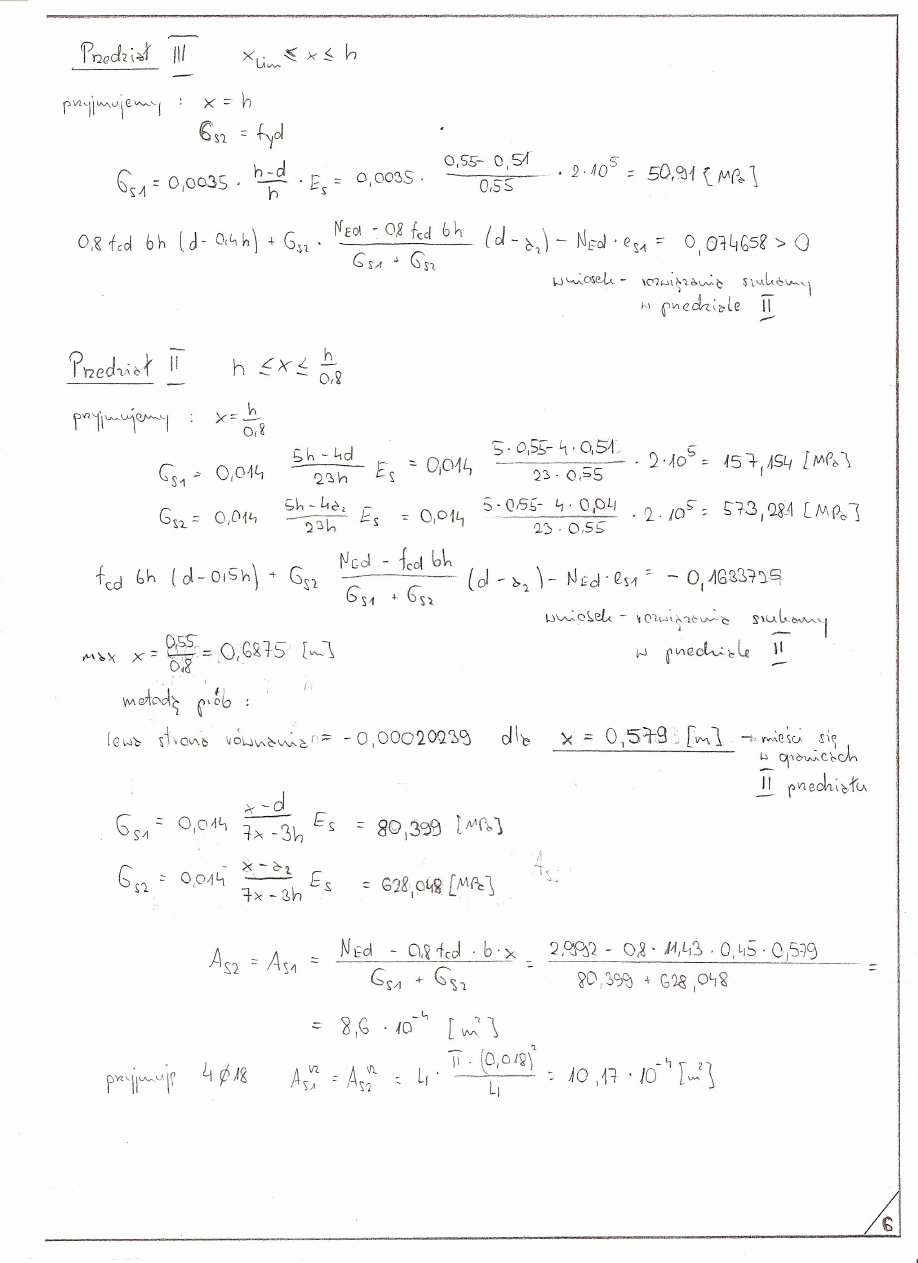 Przedział III x_Lim ≤ x ≤ h
przyjmujemy : x = h
σ_S2 = fyd
σ_S1 = 0,0035 · (h-d)/h · E_s = 0,0035 · (0,55 - 0,51)/0,55 · 2·10^5 = 50,91 [MPa]
0,8 fcd bh (d-0,4h) + σ_S2 · (N_Ed - 0,8 fcd bh)/(σ_S1 + σ_S2) (d-a_2) - N_Ed · e_S1 = 0,074658 > 0
wniosek - rozwiązania szukamy
w przedziale II
Przedział II h ≤ x ≤ h/0,8
przyjmujemy : x = h/0,8
σ_S1 = 0,014 (5h-4d)/23h E_s = 0,014 (5·0,55 - 4·0,51)/(23·0,55) · 2·10^5 = 157,154 [MPa]
σ_S2 = 0,014 (5h-4a_2)/23h E_s = 0,014 (5·0,55 - 4·0,04)/(23·0,55) · 2·10^5 = 573,281 [MPa]
fcd bh (d-0,5h) + σ_S2 (N_Ed - fcd bh)/(σ_S1 + σ_S2) (d-a_2) - N_Ed · e_S1 = -0,1633725
wniosek - rozwiązania szukamy
w przedziale II
max x = 0,55/0,8 = 0,6875 [m]
metodą prób :
lewa strona równania = -0,00020239 dla x = 0,579 [m] → mieści się
w granicach
II przedziału
σ_S1 = 0,014 (x-d)/(7x-3h) E_s = 80,399 [MPa]
σ_S2 = 0,014 (x-a_2)/(7x-3h) E_s = 628,048 [MPa]
A_S2 = A_S1 = (N_Ed - 0,8 fcd · b · x)/(σ_S1 + σ_S2) = (2,992 - 0,8 · 11,43 · 0,45 · 0,579)/(80,399 + 628,048) =
= 8,6 · 10^-4 [m²]
przyjmuję 4 ø 18 A_S1^rz = A_S2^rz = 4 · (π · (0,018)²)/4 = 10,17 · 10^-4 [m²]
6